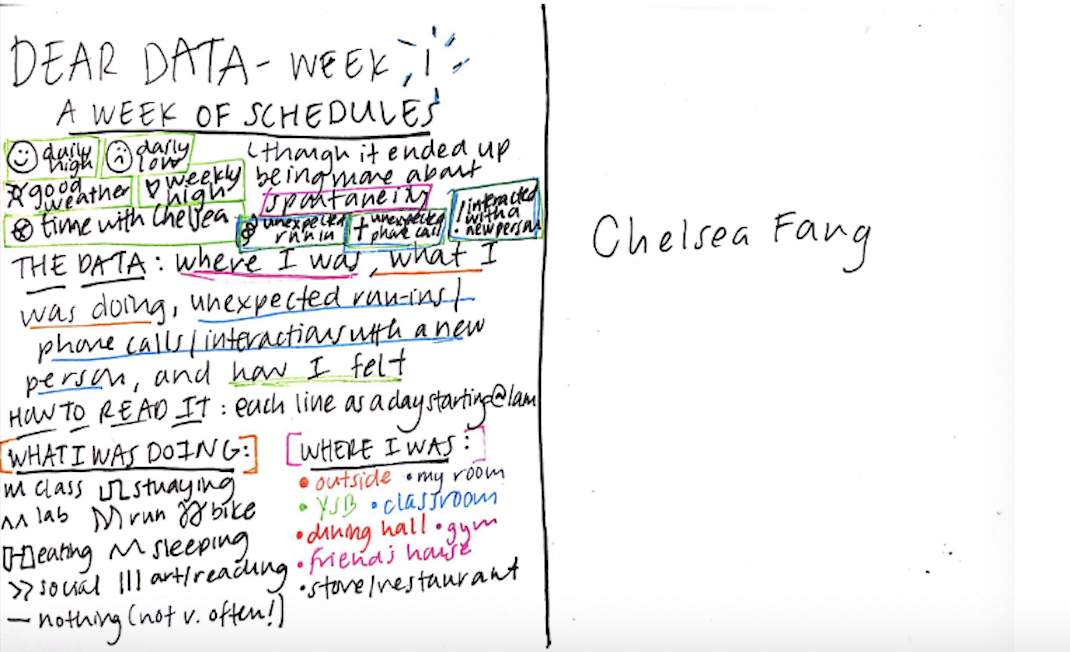 DEAR DATA - WEEK 1
A WEEK OF SCHEDULES
daily high
daily low
(though it ended up being more about spontaneity
good weather
weekly high
time with Chelsea
unexpected run in
unexpected phone call
interacted with a new person
THE DATA: where I was, what I
was doing, unexpected run-ins/
phone calls/interactions with a new
person, and how I felt
HOW TO READ IT: each line as a day starting @1am
WHAT I WAS DOING:
class studying
lab run bike
eating sleeping
social art/reading
nothing (not v. often!)
WHERE I WAS:
outside my room
YSB classroom
dining hall gym
friend's house
store/restaurant
Chelsea Fang